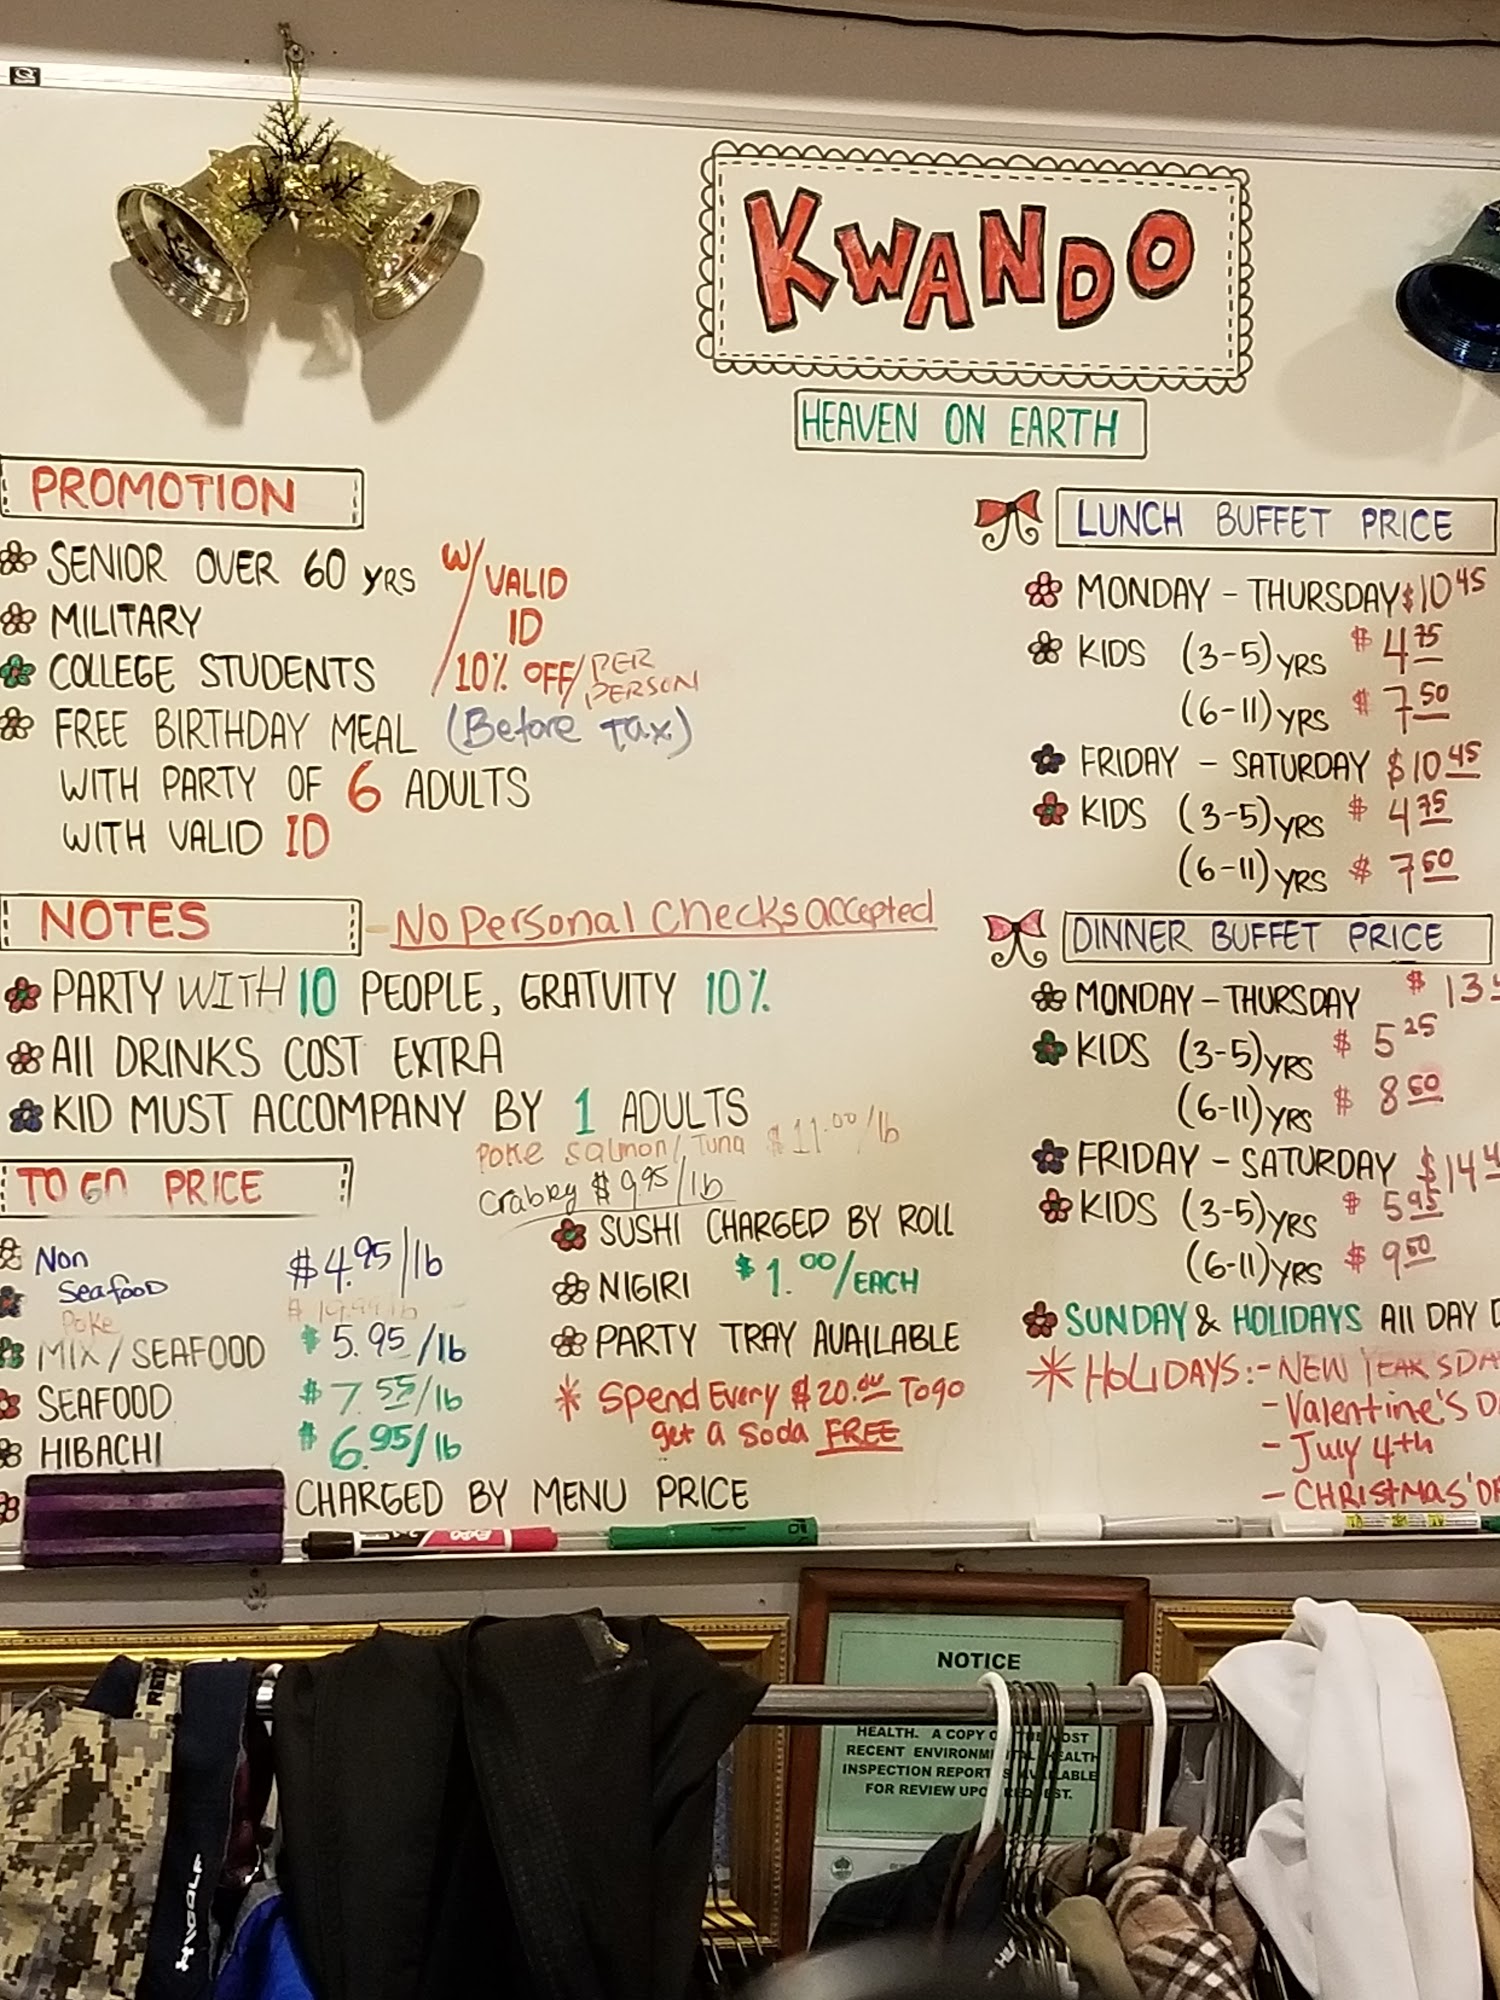 KWANDO
HEAVEN ON EARTH
PROMOTION
SENIOR OVER 60 YRS
MILITARY
COLLEGE STUDENTS
W/VALID
ID
10% OFF/PER
PERSON
FREE BIRTHDAY MEAL (Before Tax)
WITH PARTY OF 6 ADULTS
WITH VALID ID
NOTES - No Personal Checks accepted
PARTY WITH 10 PEOPLE, GRATUITY 10%
All DRINKS COST EXTRA
KID MUST ACCOMPANY BY 1 ADULTS
Poke Salmon/Tuna $11.00/lb
$9.95/lb
TO GO PRICE
Non $4.95/lb
Seafood
Poke
MIX/SEAFOOD $5.95/lb
SEAFOOD $7.55/lb
HIBACHI $6.95/lb
CHARGED BY MENU PRICE
SUSHI CHARGED BY ROLL
NIGIRI $1.00/EACH
PARTY TRAY AVAILABLE
* Spend Every $20.00 Togo
get a Soda FREE
LUNCH BUFFET PRICE
MONDAY - THURSDAY $10 45
KIDS (3-5) YRS $4 75
(6-11) YRS $7 50
FRIDAY - SATURDAY $10 45
KIDS (3-5) YRS $4 75
(6-11) YRS $7 50
DINNER BUFFET PRICE
MONDAY - THURSDAY $13
KIDS (3-5) YRS $5 25
(6-11) YRS $8 50
FRIDAY - SATURDAY $14
KIDS (3-5) YRS $5 95
(6-11) YRS $9 50
SUNDAY & HOLIDAYS All DAY
* HOLIDAYS: - NEW YEAR'S DA
- Valentine's D
- July 4th
- CHRISTMAS' D
EXPO
NOTICE
HEALTH. A COPY OF THE MOST
RECENT ENVIRONMENTAL HEALTH
INSPECTION REPORT IS AVAILABLE
FOR REVIEW UPON REQUEST.